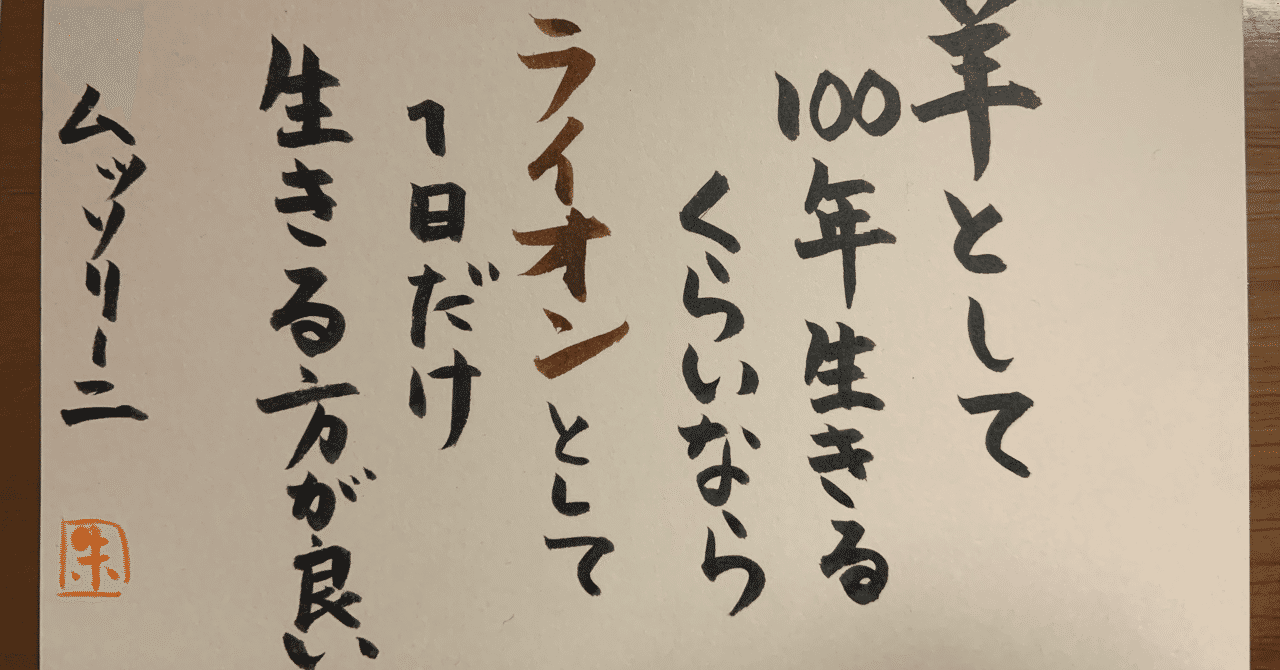 羊として
100年生きる
くらいなら
ライオンとして
1日だけ
生きる方が良い
ムッソリーニ
朱